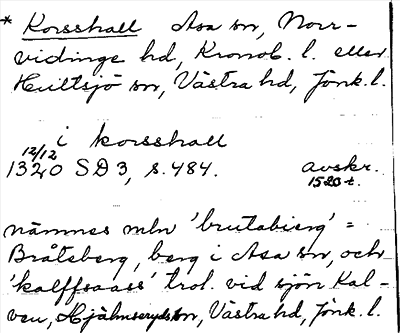 * Korsshall Asa sn, Norr-
vidinge hd, Kronob. l. eller
Hultsjö sn, Västra hd, Jönk. l.
i korsshall
12/12
1320 SD 3, s. 484. avskr.
1520-t.
nämnes mln 'brutabierg' =
Bråtsberg, berg i Asa sn, och
'kalffsaass' trol. vid sjön Kal-
ven, Hjälmseryds sn, Västra hd, Jönk. l.